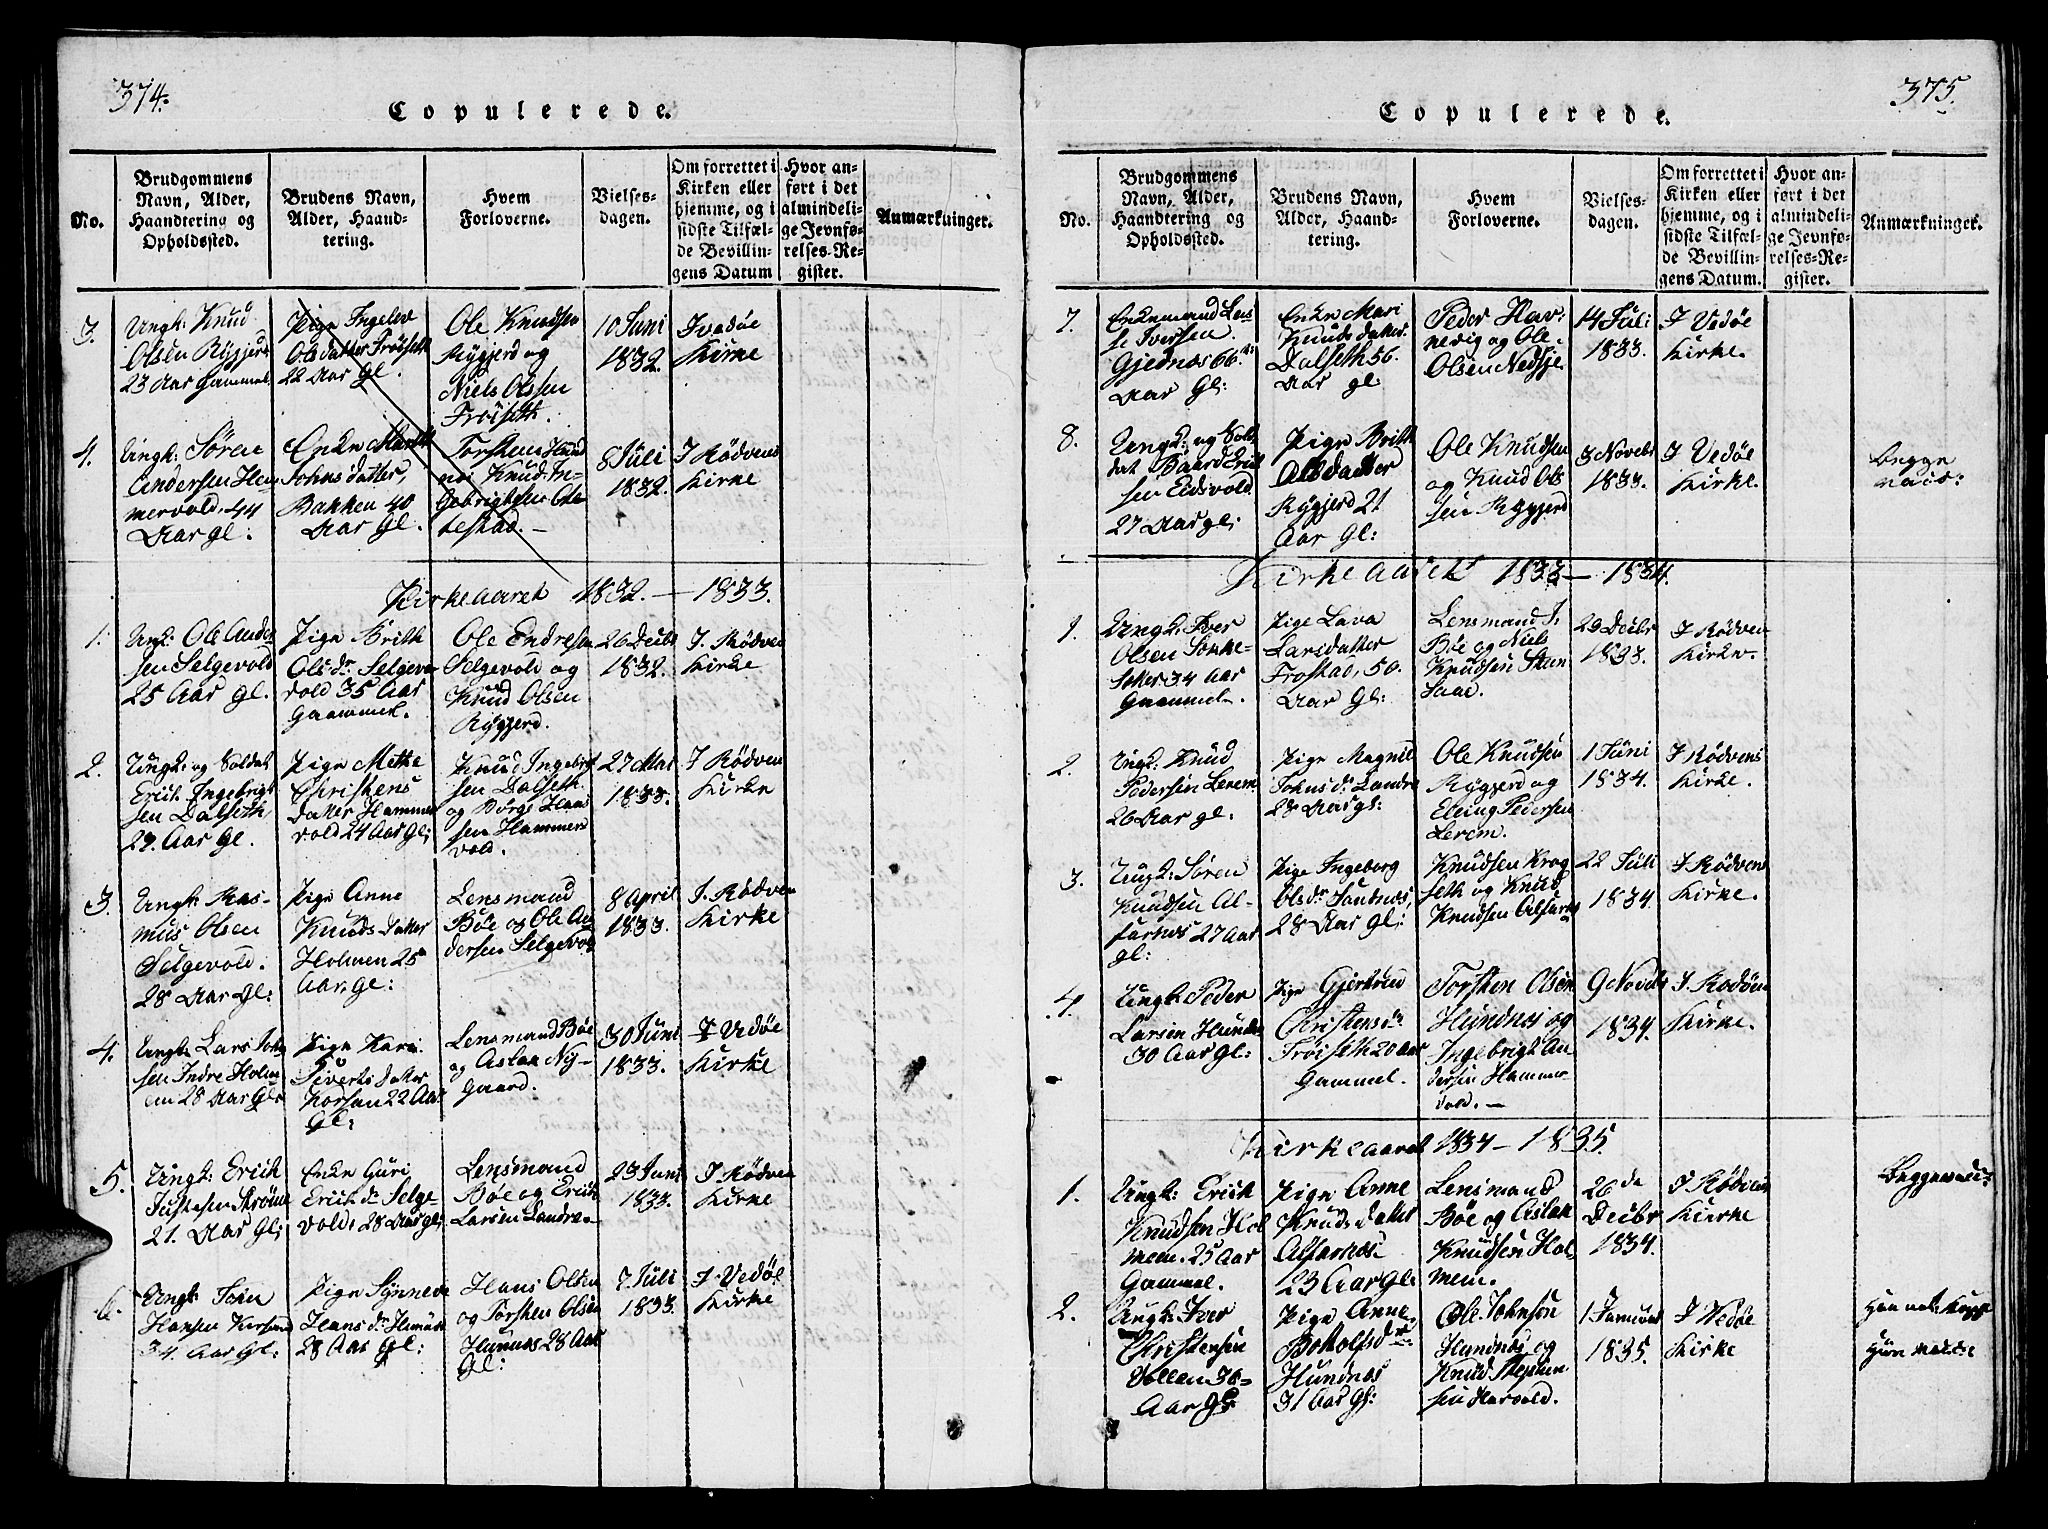 374.
Copulerede.
No.
Brudgommens
Navn, Alder,
Haandtering og
Opholdssted.
Brudens Navn,
Alder, Haand-
tering.
Hvem
Forloverne.
Vielses-
dagen.
Om forrettet i
Kirken eller
hjemme, og i
sidste Tilfæl-
de Bevillin-
gens Datum
Hvor an-
ført i det
almindeli-
ge Jevnfø-
relses-Re-
gister.
Anmærkninger.
3.
Ungk: Knud
Olsen Rygjerd
23 Aar Gammel
Pige Ingelev
Olsdatter Fröiseth
22 Aar Gl.
Ole Knudsen
Rygjerd og
Niels Olsen
Fröiseth.
10 Juni
1832.
Ivedøe
Kirke
4.
Ungk: Sören
Andersen Ham
mervold. 44
Aar gl.
Enke Mareth
Johns datter,
Bakken 40
Aar Gl.
Torsten Hund
nes Knud In-
gebrigtsen Ole
testad. —
8 Juli
1832.
I Rödvens
Kirke
Kirkeaaret 1832. — 1833.
1.
Ungk: Ole Ander
sen Selgevold
25 Aar gl.
Pige Brith
Olsdr Selge
vold 35 Aar
Gaammel.
Ole Endresen
Selgevold og
Knud Olsen
Rygjerd.
26 Decbr
1832.
I. Rödven
Kirke
2.
Ungk: og Soldat
Erich Ingebrigt
sen Dalseth
29. Aar gl.
Pige Mette
Christens
datter Hammer
vold 24 Aar gl;
Knud Ingebrigt
sen Dalseth
og Börge Hans
sen Hammer
vold.
27 Mai
1833.
I Rödven
Kirke
3.
Ungk: Ras-
mus Olsen
Selgevold.
28 Aar Gl:
Pige Anne
Knuds datter
Holmen 25
Aar. gl:
Lensmand
Böe og Ole An
dersen Selgevold
8 April
1833.
I. Rödven
Kirke
4.
Ungk: Lars John
sen Indre Holm
em 28 Aar Gl:
Pige Kari
Siverts datter
Korsan 22 Aar
Gl:
Lensmand Böe
og Aslak Ny-
Gaard.
30 Juni
1833.
I Vedöe
Kirke
5.
Ungk: Erich
Justesen Strömme
21. Aar Gl;
Enke Guri
Erich dr Selge
vold: 28 Aar gl;
Lensmand
Böe og Erich
Larsen Landre-
23 Juni
1833.
I Rödven
Kirke
6.
Ungk: Join
Hansen Korsan
34. Aar Gl:
Pige Synneve
Hans dr Hundnes
28 Aar Gl:
Hans Olsen
og Torsten Olsen
Hunnes 28 Aar
Gl:
7. Juli
1833.
I. Vedöe
Kirke
375.
Copulerede.
No.
Brudgommens
Navn, Alder,
Haandtering og
Opholdssted.
Brudens Navn,
Alder, Haand-
tering.
Hvem
Forloverne.
Vielses-
dagen.
Om forrettet i
Kirken eller
hjemme, og i
sidste Tilfæl-
de Bevillin-
gens Datum.
Hvor an-
ført i det
almindeli-
ge Jevnfø-
relses-Re-
gister.
Anmærkninger.
7.
Enkemand Las-
se Iversen
Gjednæs 66
Aar Gl:
Enke Mari
Knuds datter
Dalseth 56.
Aar gl
Peder Hav-
nevig og Ole
Olsen Nedsje
14 Juli
1833.
I Vedöe
Kirke.
8.
Ungk: og Sol-
dat Baard Erich
sen Eidsvold
27 Aar gl;
Pige Brith
Olsdatter
Rygjerd 21
Aar Gl:
Ole Knudsen
og Knud Ol-
sen Rygjerd
3 Novebr
1833.
I Vedöe
Kirke.
Begge
vacs:
Kirkeaaret 1833 — 1834.
1.
Ungk: Iver
Olsen Sokke-
seter 34 Aar
Gaammel.
Pige Lava
Larsdatter
Frostad, 50.
Aar Gl:
Lensmand I.
Böe og Niels
Knudsen Stan
saae.
29 Decbr
1833.
I Rödven
Kirke.
2.
Ungk: Knud
Pedersen Lerem
26 Aar gl.
Pige Magnil
Johns dr Landre
28 Aar gl:
Ole Knudsen
Rygjerd og
Eling Pedersen
Lerem.
1 Juni
1834.
I Rödvens
Kirke.
3.
Ungk: Sören
Knudsen Al-
farnes 27 Aar
gl:
Pige Ingeborg
Olsdr Sandnes,
28 Aar Gl;
Knudsen Krog
seth og Knud
Knudsen Alfarnes
22 Juli
1834.
I Rödven
Kirke.
4.
Ungk: Peder
Larsen Hundnes
30 Aar Gl:
Pige Gjertrud
Christensdr
Fröiseth 20 Aar
Gammel.
Torsten Olsen
Hundnes og
Ingebrigt An
dersen Hammer
vold. —
9 Novebr
1834.
I. Rödven
Kirke.
Kirkeaaret 1834 — 1835.
1.
Ungk: Erich
Knudsen Hol
mem. 25 Aar
Gammel.
Pige Anne
Knuds datter
Alfarnes
23 Aar Gl:
Lensmand
Böe og Aslak
Knudsen Hol
mem.
26 de
Decbr
1834.
I Rödven
Kirke
2.
Ungk: Iver
Christensen
Vollen 30
Aar Gl:
Pige Anne
Botolfsdr
Hundnes
31 Aar gl:
Ole Johnsen
Hundnes og
Knud Stephen
sen Harvold.
1 Januar
1835.
I Vedöe
Kirke